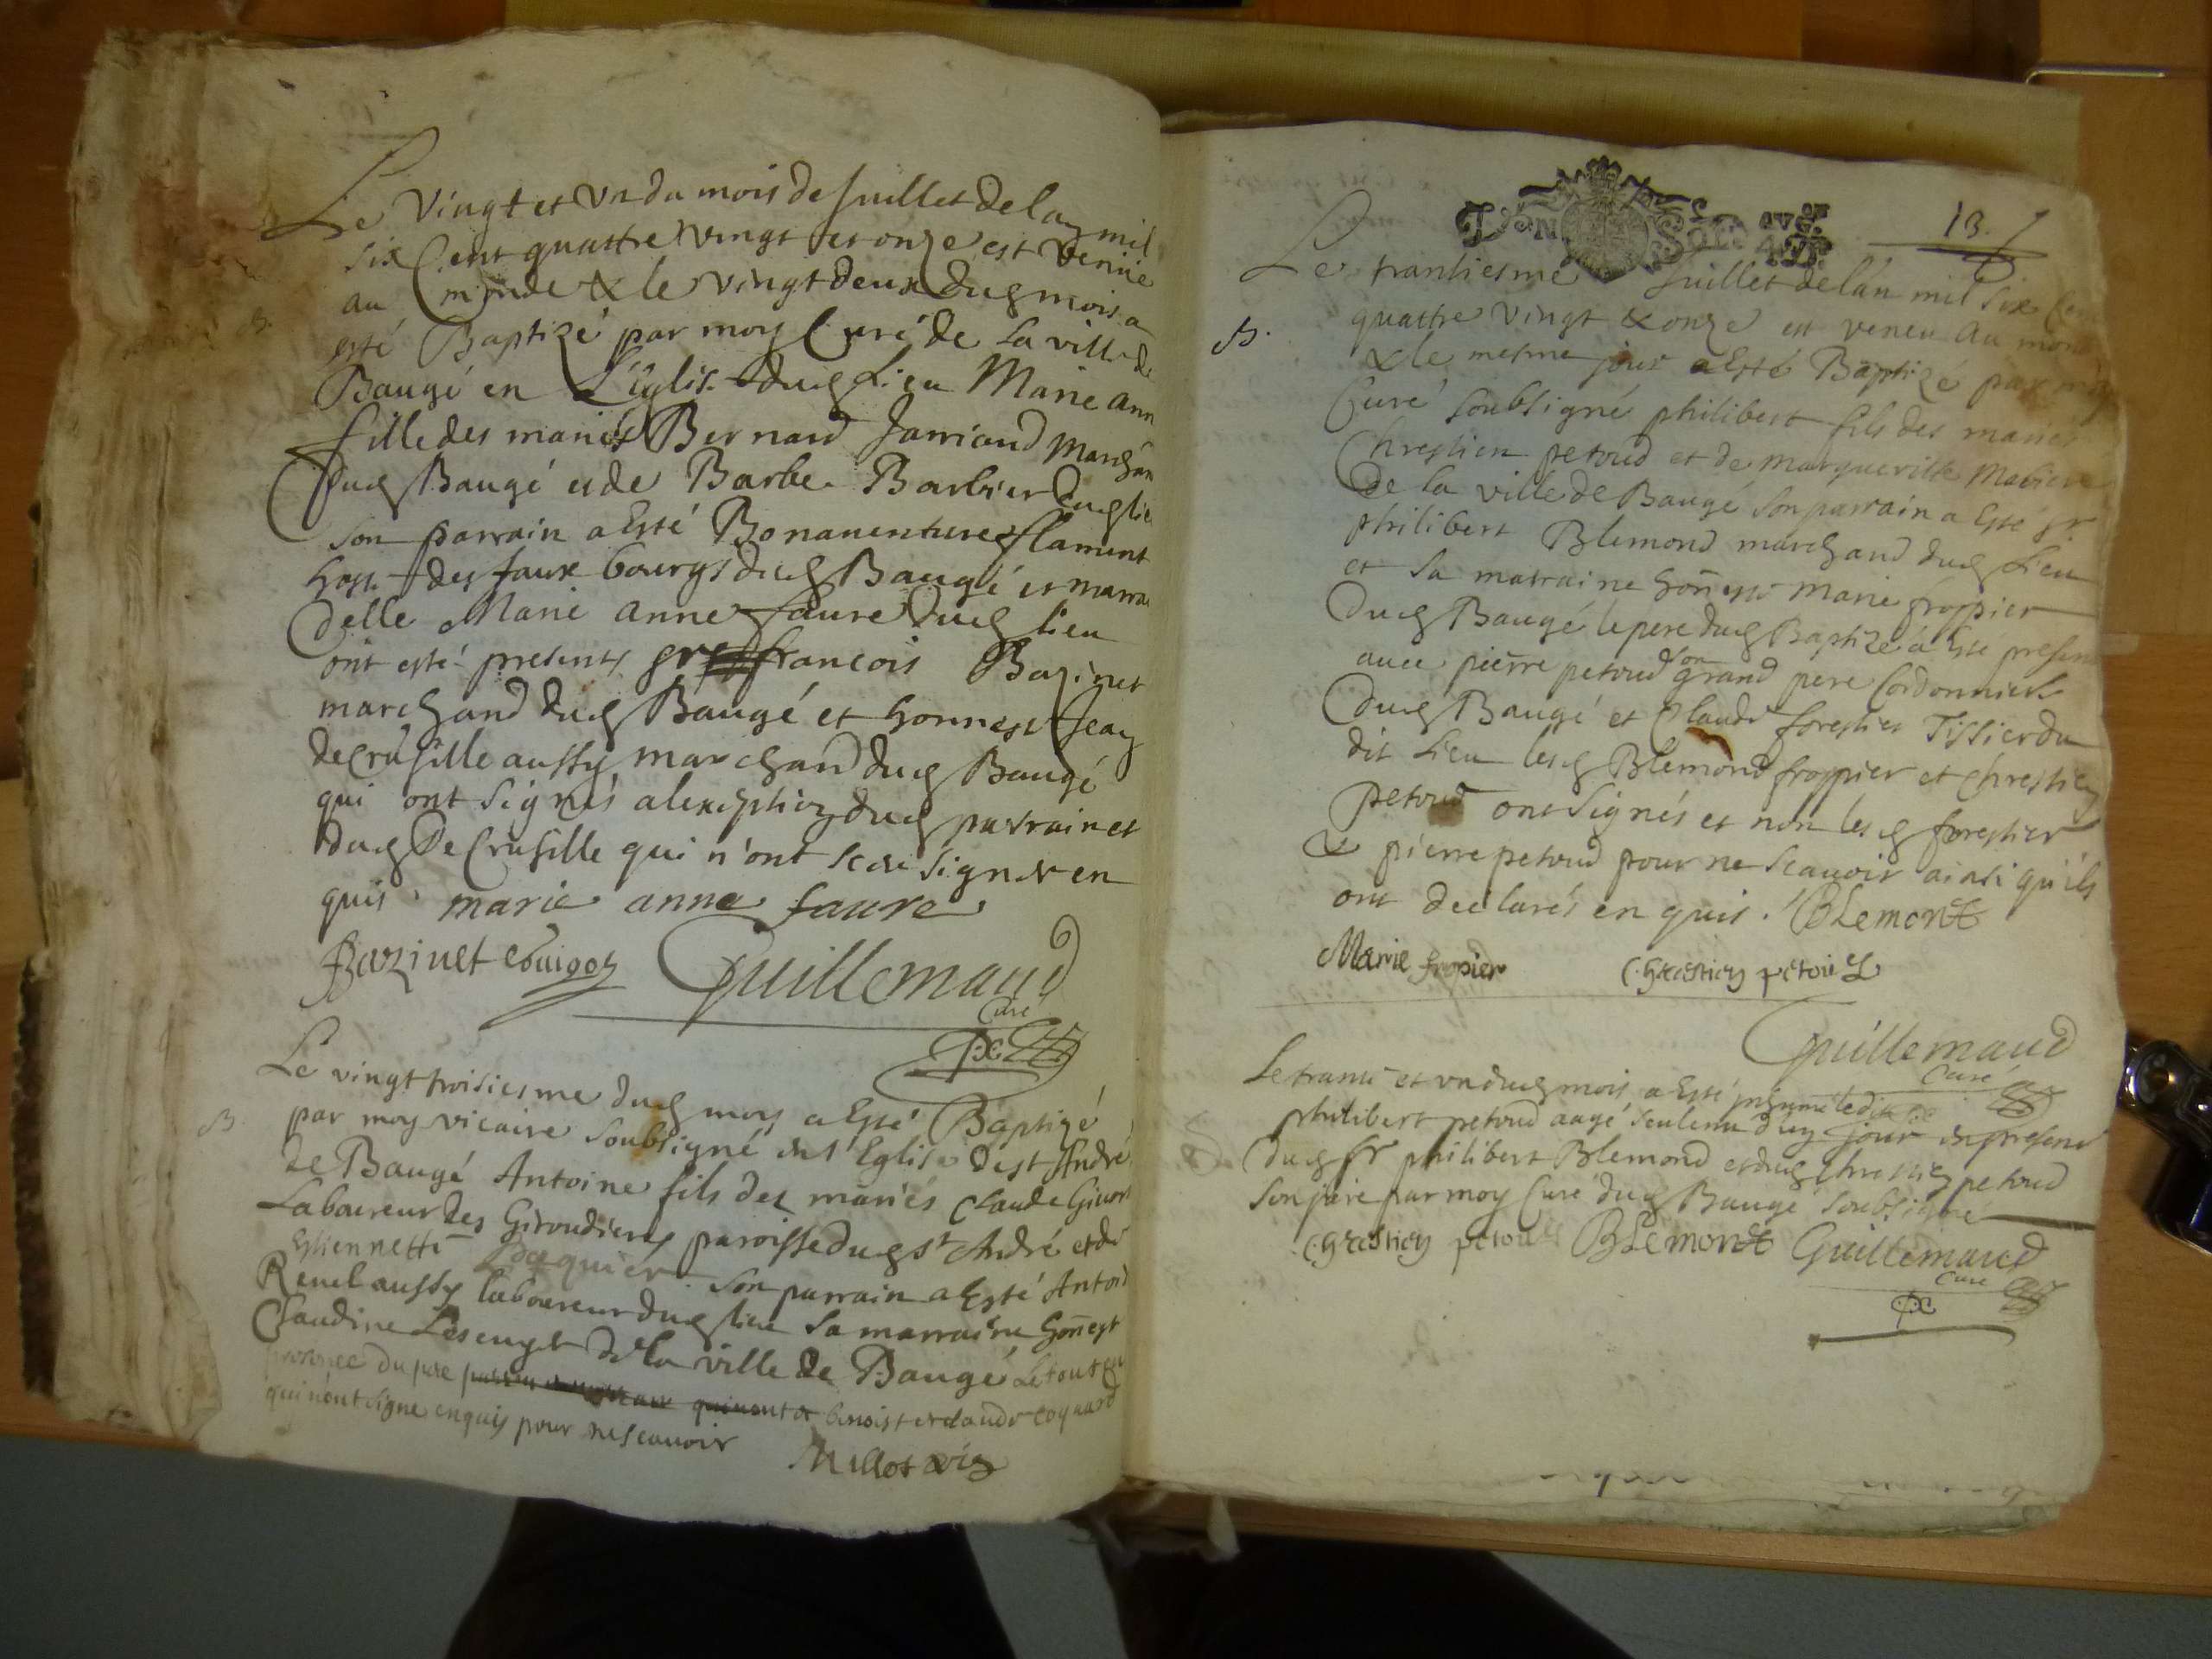 Le vingt et un du mois de Juillet de lan mil
six Cent quattre vingt et onze est venüe
au monde & le vingt deux dud mois a
esté Baptizé par moy Curé de la ville de
Baugé en L'Eglise dud Lieu Marie ann
fille des mariés Bernard Jarriaud Marchan
dud Baugé et de Barbe Barbier dud lie
son parrain a Esté Bonaventure flament
hoste des faux bourgs dud Baugé et marra
delle Marie anne faure dud lieu
ont esté presents françois Bazinet
marchand dud Baugé et honneste Jean
deCrusille aussy marchand dud Baugé
qui ont signés a lexeption dud parrain et
dud De Crusille qui n'ont sceu signer en
quis. marie anne faure
Bazinet Guillemaud
Curé
Le vingt troisiesme dud mois a Esté Baptizé
B. par moy vicaire soubsigné en l'Eglise de st André
de Baugé Antoine fils des mariés Claude Givors
Laboureur des Giroudieres paroisse dud st André et de
Estiennette son parrain a Esté Antoi
Revel aussy laboureur dud lieu sa marraine honest
Claudine de la ville de Baugé Le tout en
presence du pere benoist et claude coynard
qui n'ont signé enquis pour ne scavoir
Millot vic
13.
Le trantiesme Juillet de lan mil six Cen
B. quattre vingt & onze est veneu au mon
& le mesme jour a Esté Baptizé par moy
Curé soubsigné philibert fils des mariés
Chrestien petoud et de Margueritte
de la ville de Baugé son parrain a Esté sr
philibert Blemond marchand dud Lieu
et sa marraine honeste Marie froppier
dud Baugé le pere dud Baptizé a Esté presen
avec pierre petoud son grand pere Cordonnier
dud Baugé et Claude forestier Tissier du
dit Lieu lesd Blemond froppier et Chrestien
petoud ont signés et non lesd forestier
& pierre petoud pour ne scavoir ainsi qu'ils
ont declarés enquis. BLemont
Marie fropier Chrestien petoud
Guillemaud
Curé
Le trante et un dud mois a Esté inhumé led
philibert petoud aagé seulemt d'un jour en presence
dud sr philibert Blemond et dud Chrestien petoud
son pere par moy Curé dud Baugé soubsigné
Chrestien petoud BLemont Guillemaud
Curé